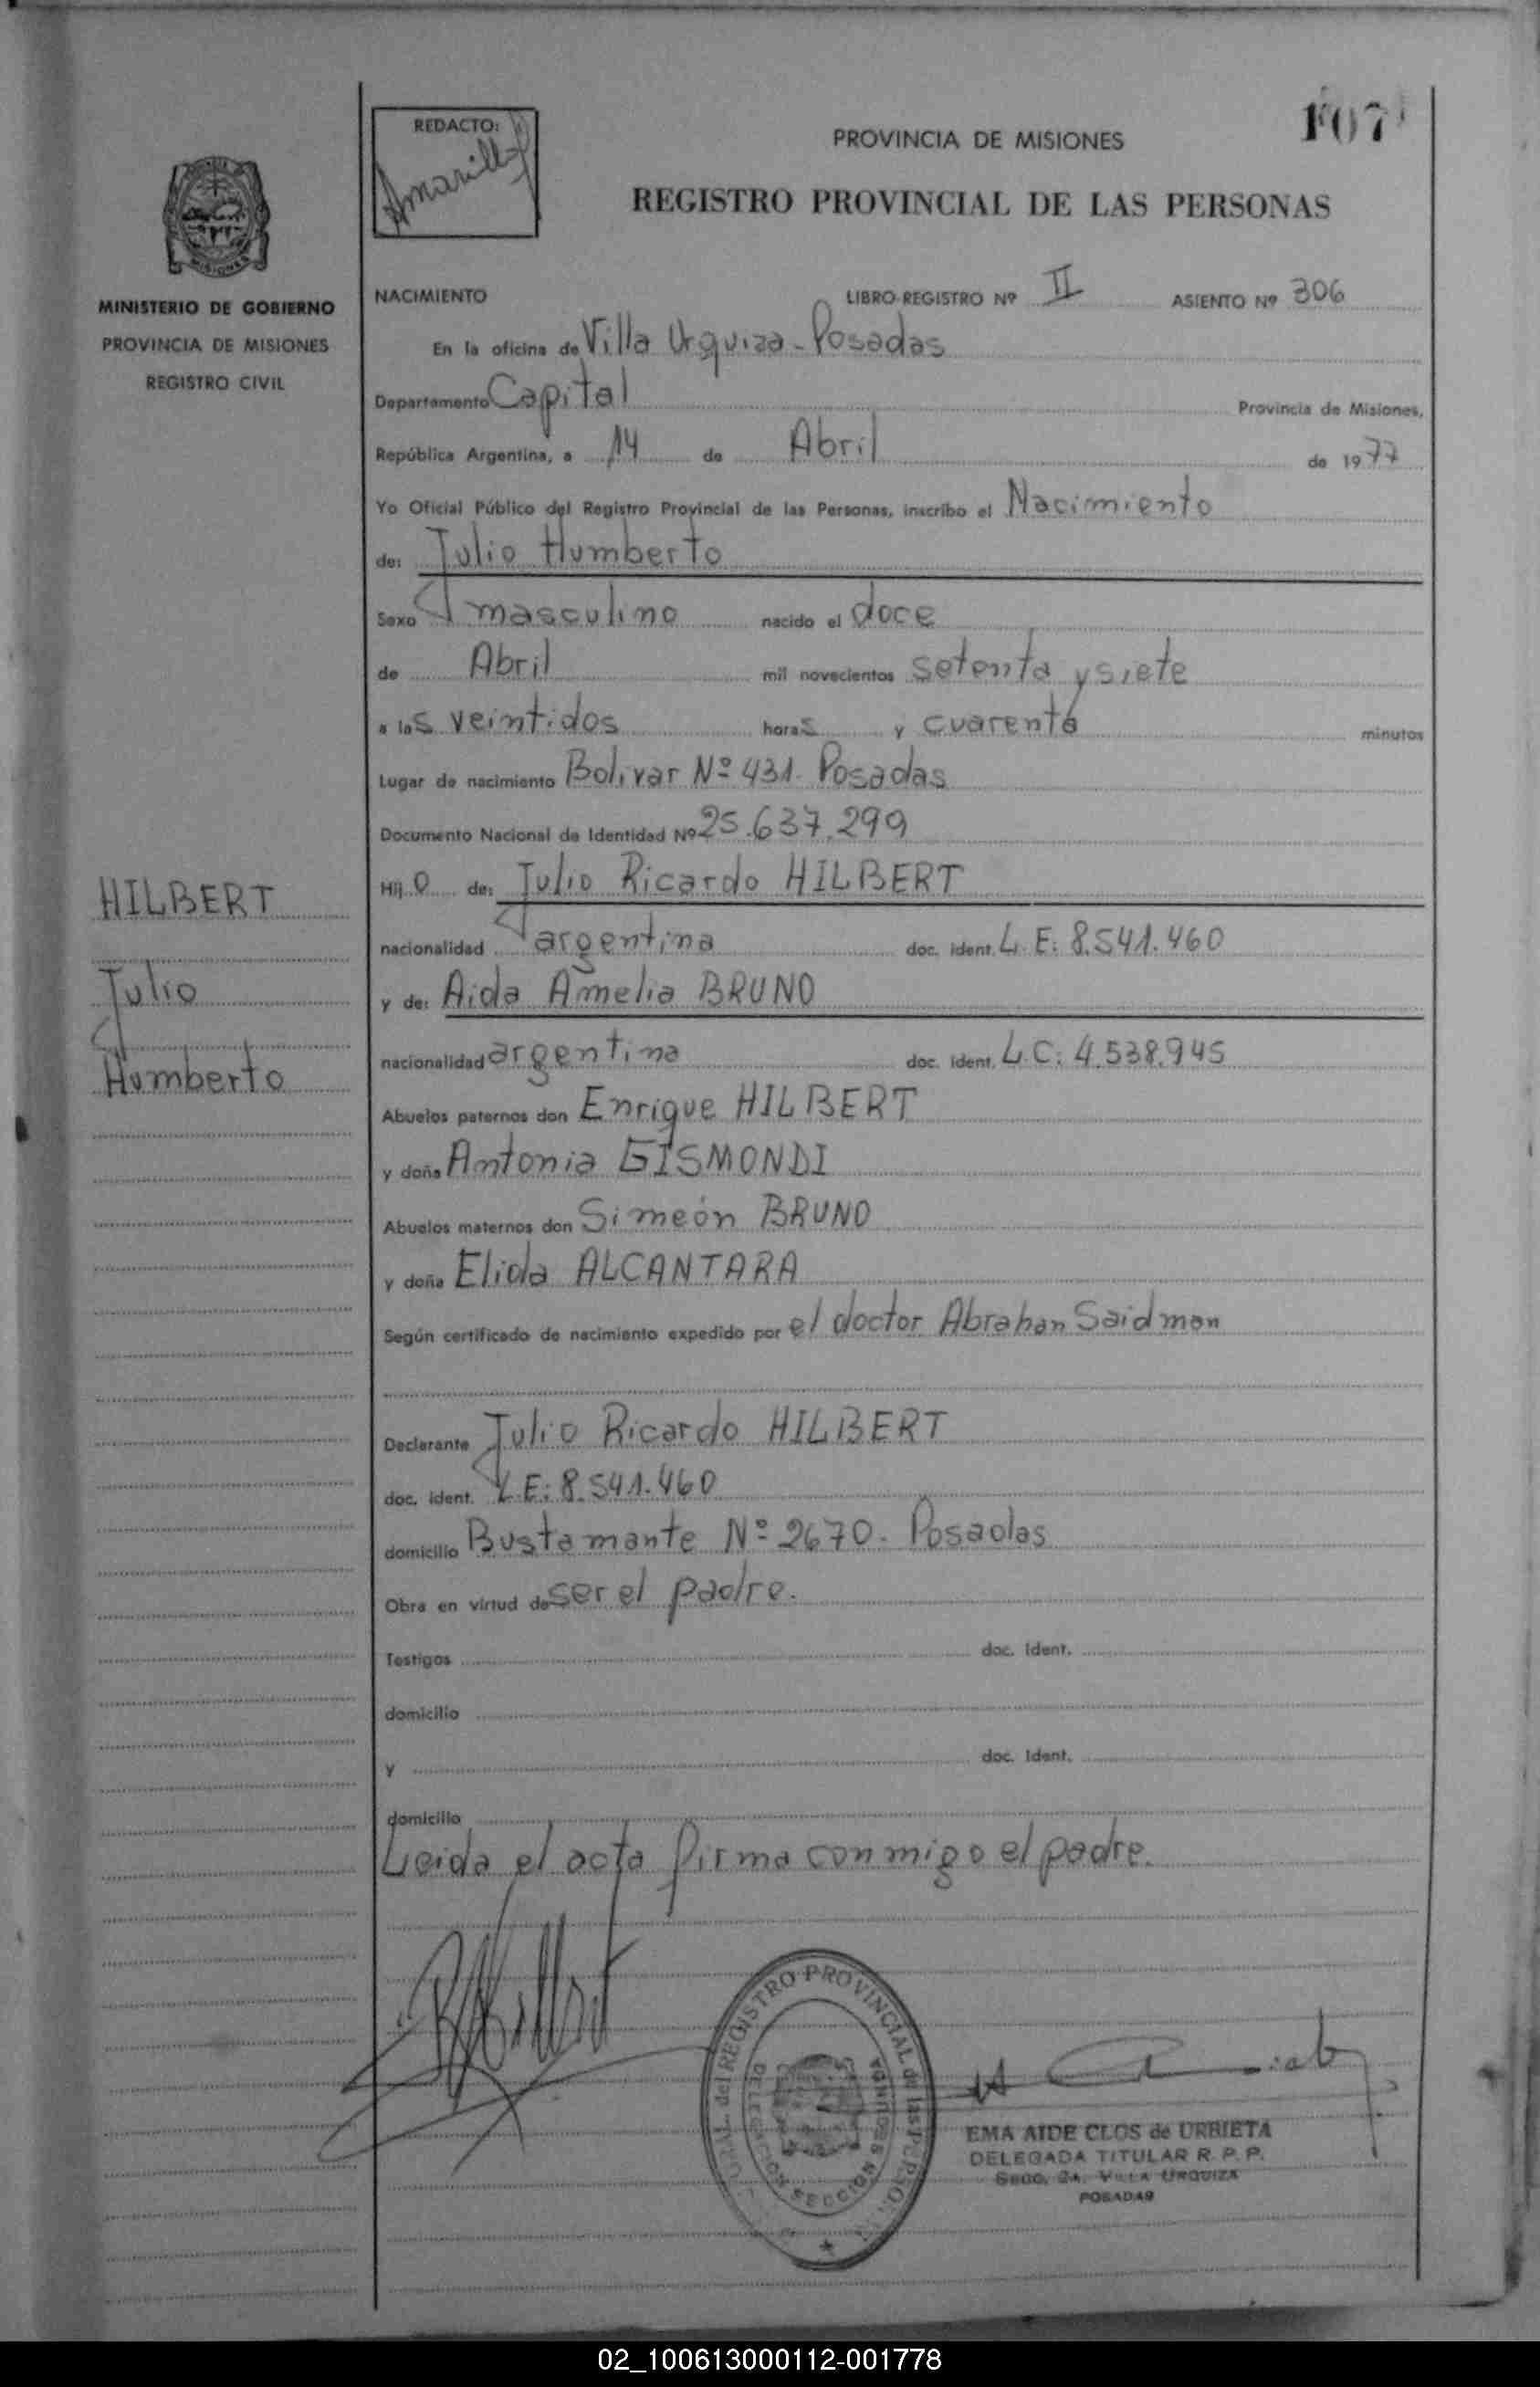 REDACTO:
Amarilla
PROVINCIA DE MISIONES
107
REGISTRO PROVINCIAL DE LAS PERSONAS
MISIONES
MINISTERIO DE GOBIERNO
PROVINCIA DE MISIONES
REGISTRO CIVIL
NACIMIENTO LIBRO REGISTRO Nº II ASIENTO Nº 306
En la oficina de Villa Urquiza - Posadas
Departamento Capital Provincia de Misiones,
República Argentina, a 14 de Abril de 1977
Yo Oficial Público del Registro Provincial de las Personas, inscribo el Nacimiento
de: Julio Humberto
Sexo masculino nacido el doce
de Abril mil novecientos setenta y siete
a las veintidos horas y cuarenta minutos
Lugar de nacimiento Bolivar Nº 431. Posadas
Documento Nacional de Identidad Nº 25.637.299
HILBERT
Julio
Humberto
Hijo de: Julio Ricardo HILBERT
nacionalidad argentina doc. ident. L.E: 8.541.460
y de: Aida Amelia BRUNO
nacionalidad argentina doc. ident. L.C: 4.538.945
Abuelos paternos don Enrique HILBERT
y doña Antonia GISMONDI
Abuelos maternos don Simeón BRUNO
y doña Elida ALCANTARA
Según certificado de nacimiento expedido por el doctor Abrahan Saidman
Declarante Julio Ricardo HILBERT
doc. ident. L.E: 8.541.460
domicilio Bustamante Nº 2670. Posadas
Obra en virtud de ser el padre.
Testigos doc. ident.
domicilio
y doc. ident.
domicilio
Leida el acta firma conmigo el padre.
del REGISTRO PROVINCIAL de las PERSONAS
DELEGACION SECCION SEGUNDA
EMA AIDE CLOS de URRIETA
DELEGADA TITULAR R. P. P.
Secc. 2a. VILLA URQUIZA
POSADAS
02_100613000112-001778